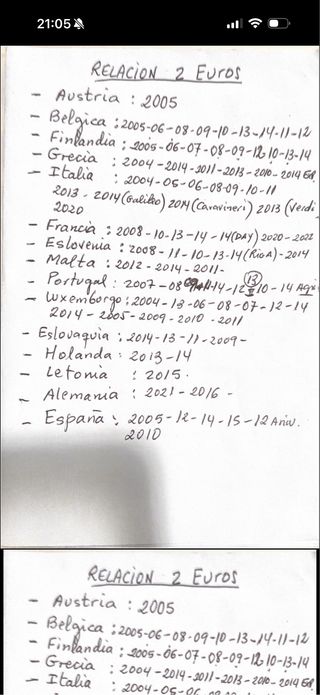 21:05
RELACION 2 EUROS
- Austria : 2005
- Belgica : 2005-06-08-09-10-13-14-11-12
- Finlandia : 2005-06-07-08-09-12 10-13-14
- Grecia : 2004-2014-2011-2013-2010-2014
- Italia : 2004-05-06-08-09-10-11
2013-2014 (Galileo) 2014 (Caravineri) 2013 (Verdi)
2020
- Francia : 2008-10-13-14-14 (DAY) 2020-2022
- Eslovenia : 2008-11-10-13-14 (RioA) -2014
- Malta : 2012-2014-2011-
- Portugal : 2007-08 14-12 13 10-14
- Luxemborgo : 2004-13-06-08-07-12-14
2014-2005-2009-2010-2011
- Eslovaquia : 2014-13-11-2009-
- Holanda : 2013-14
- Letonia : 2015.
- Alemania : 2021-2016-
- España : 2005-12-14-15-12 Aniv.
2010
RELACION 2 EUROS
- Austria : 2005
- Belgica : 2005-06-08-09-10-13-14-11-12
- Finlandia : 2005-06-07-08-09-12 10-13-14
- Grecia : 2004-2014-2011-2013-2010-2014
- Italia : 2004-05-06